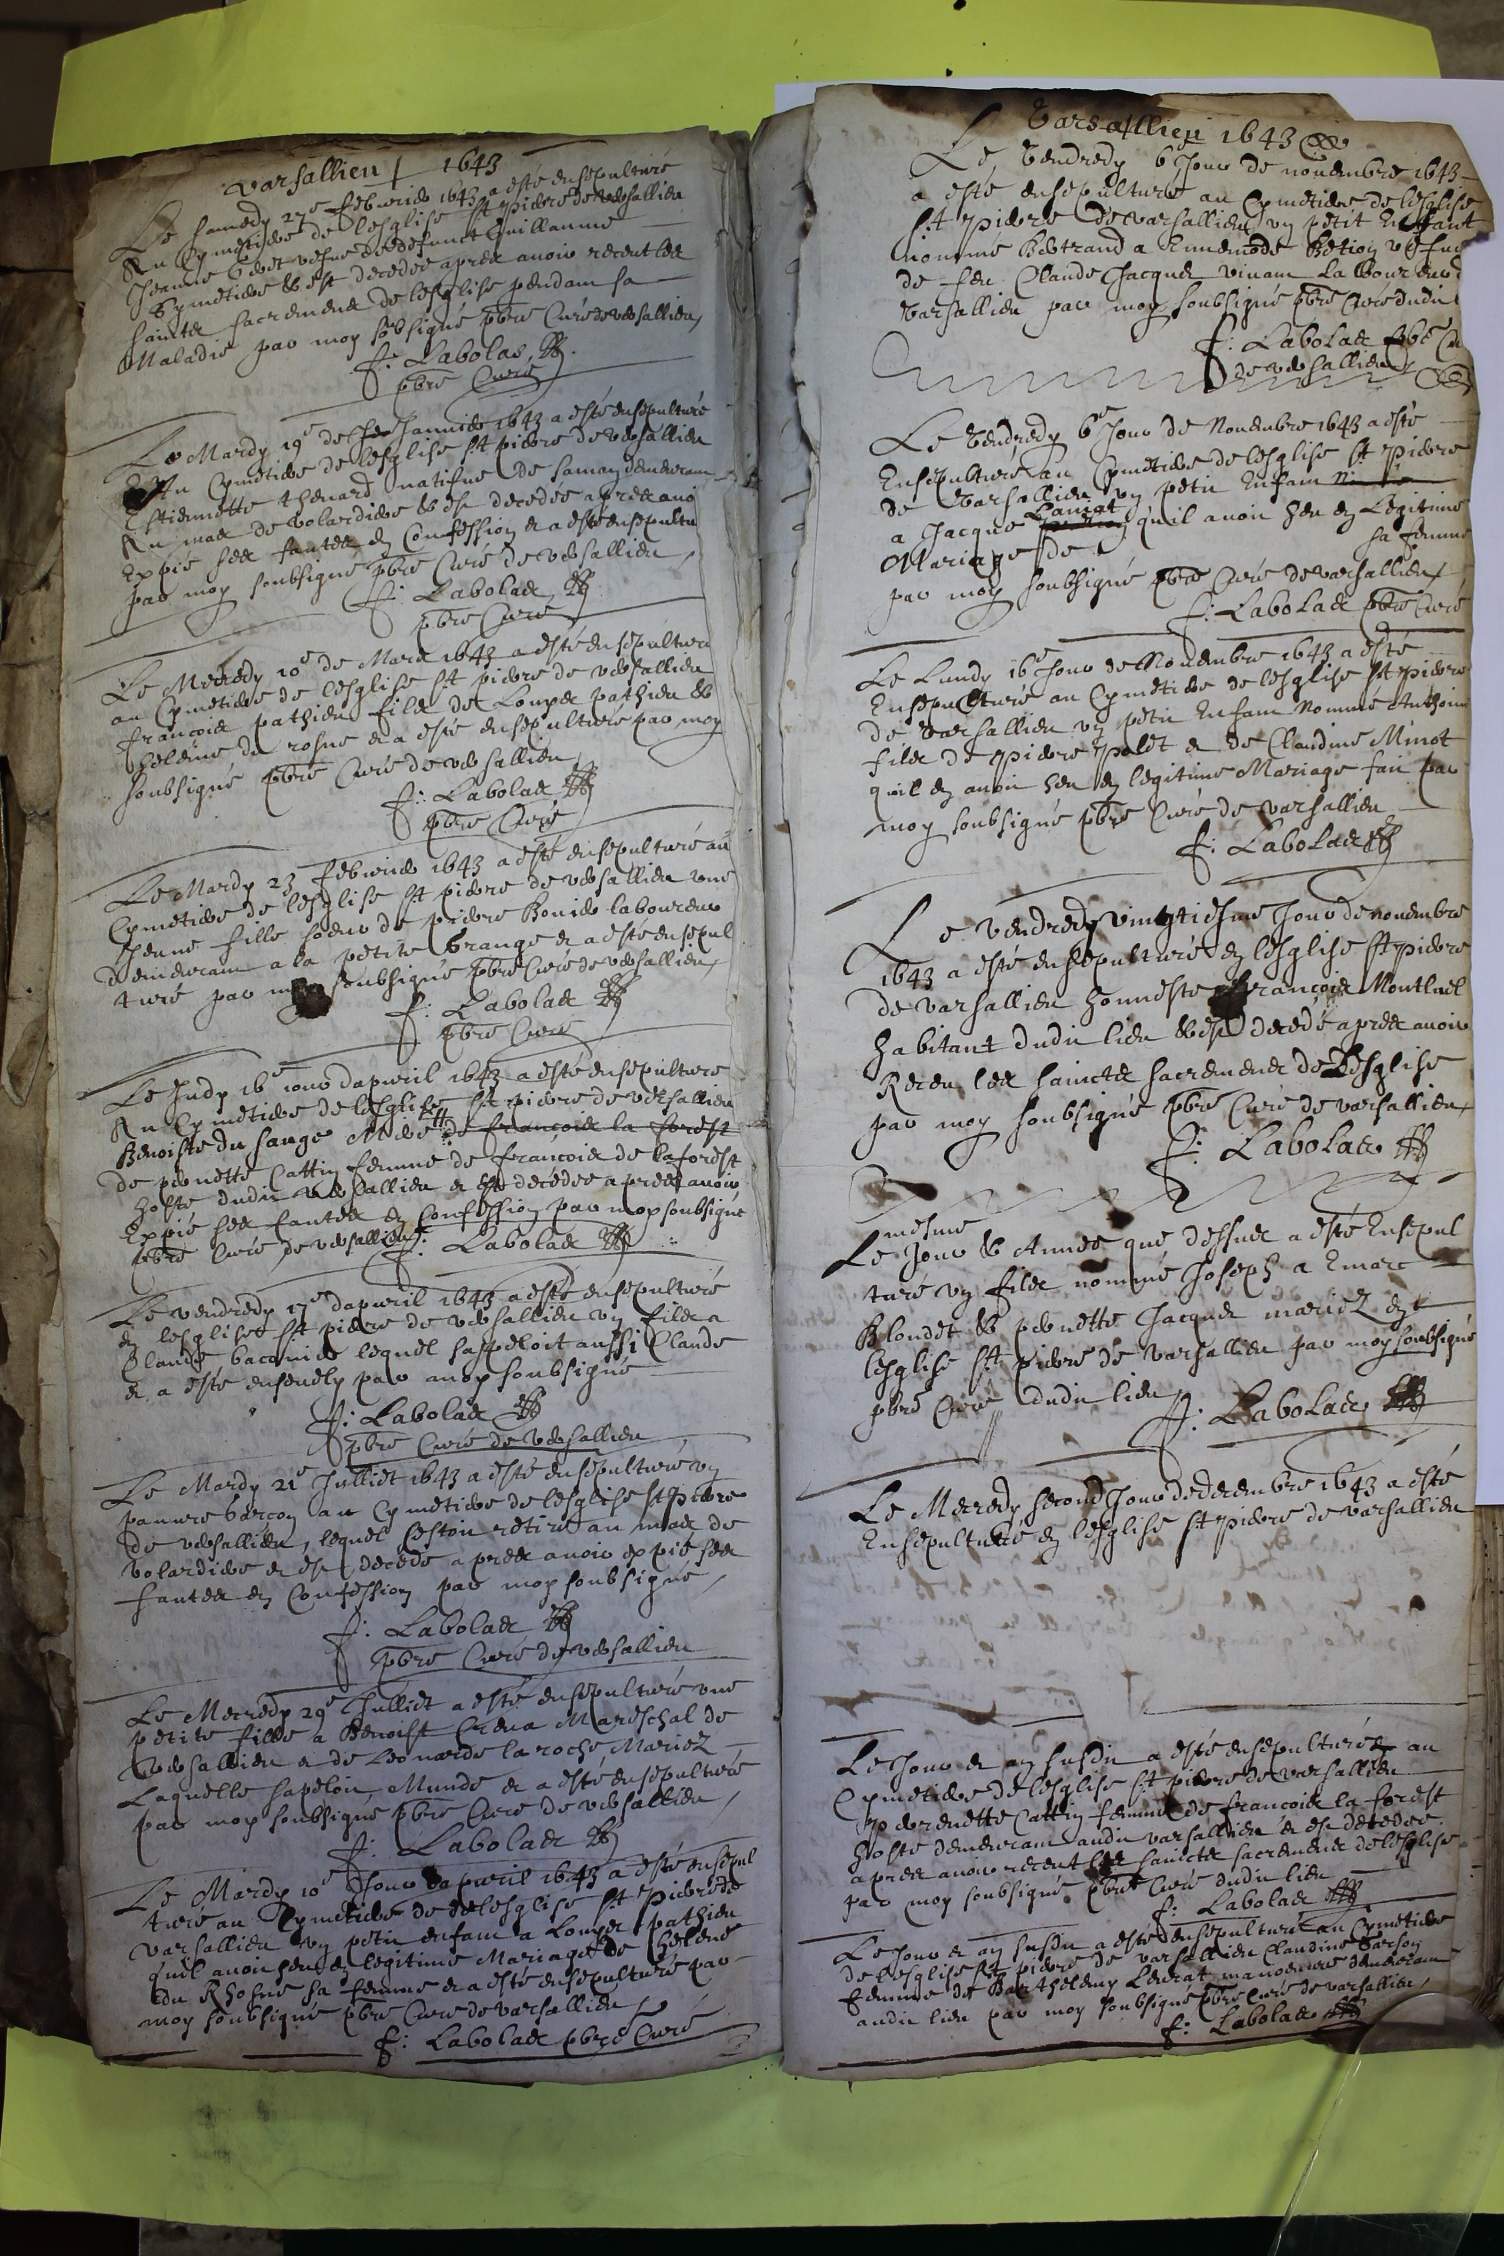 Varsallieu 1643
Le samedy 27e febvrier 1643 a esté ensepulturé
Au Cymetiere de lesglise st pierre de Versallieu
Jeanne vefve de defunct Guillaume
Cymetiere & est decedée apres avoir receut les
saintes sacremens de lesglise pendam sa
Maladie par moy sobsigné pbre Curé de Versallieu
f: Labolas
pbre Curé
Le Mardy 19e de Janvier 1643 a esté ensepulturé
Au Cymetiere de lesglise st pierre de Versallieu
Estiennette thenard natifve de demeuram
Au mas de volardiere & est decedée apres avoi
Expié ses fautes en Confession et a esté ensepultu
par moy soubsigné pbre Curé de Versallieu
f: Labolas
pbre Curé
Le Mecredy 10e de Mars 1643 a esté ensepulturé
au Cymetiere de lesglise st pierre de versallieu
françois pathieu fils de Loupes pathieu &
helene du rosne et a esté ensepulturé par moy
soubsigné pbre Curé de versallieu
f: Labolas
pbre Curé
Le Mardy 23 febvrier 1643 a esté ensepulturé au
Cymetiere de lesglise st pierre de versallieu une
Jeune fille soeur de pierre Bonier laboureur
demeuram a la petite Grange et a esté ensepul
turé par moy soubsigné pbre Curé de versallieu
f: Labolas
pbre Curé
Le Judy 16e jour dapvril 1643 a esté ensepulture
Au Cymetiere de lesglise st pierre de versallieu
Benoiste du sauge Mere de françois la forest
de pernette Cattin femme de françois de laforest
hoste dudit versallieu et est decedée apres avoir
Expié ses fautes en Confession par moy soubsigné
pbre Curé de versallieu f: Labolas
Le vendredy 17e dapvril 1643 a esté ensepulturé
en lesglise st pierre de versallieu un fils a
Claude lequel sapeloit aussi Claude
et a esté ensevely par moy soubsigné
f: Labolas
pbre Curé de versallieu
Le Mardy 21e Julliet 1643 a esté ensepulturé un
pauvre Garçon au Cymetiere de lesglise st pierre
de versallieu, lequel sestoit retiré au mas de
volardiere et est decedé apres avoir expié ses
fautes en Confession par moy soubsigné
f: Labolas
pbre Curé de versallieu
Le Mecredy 29e Julliet a esté ensepulturé une
petite fille a Benoist Crena Mareschal de
versallieu et de Leonarde la roche Mariez
Laquelle sapeloit Munde et a esté ensepulturé
par moy soubsigné pbre Curé de versallieu
f: Labolas
Le Mardy 10e Jour dapvril 1643 a esté ensepul
turé au Cymetiere de de lesglise st pierre de
varsallieu un petit enfam a Loupes pathieu
quil avoit heu en legitime Mariage de helene
du Rhosne sa femme et a esté ensepulturé par
moy soubsigné pbre Curé de varsallieu
f: Labolas pbre Curé
Varsallieu 1643
Le Vendredy 6 Jour de novembre 1643
a esté ensepulturé au Cymetiere de lesglise
st pierre de varsallieu un petit Enfant
nommé Bertrand a Ennemode Betion vefve
de feu Claude Jacques vivam Laboureur d
varsallieu par moy soubsigné pbre Curé dudit
f: Labolas pbre Cu
de versallieu
Le Vendredy 6e Jour de Novembre 1643 a esté
Ensepulturé au Cymetiere de lesglise st pierre
de Varsallieu un petit Enfam
a Jacque Lanrat quil avoit heu en Legitime
Mariage de sa femme
par moy soubsigné pbre Curé de varsallieu
f: Labolas pbre Curé
Le Lundy 16e Jour de Novembre 1643 a esté
Ensepulturé au Cymetiere de lesglise st pierre
de varsallieu un petit Enfam Nommé Anthoine
fils de pierre Polet et de Claudine Minot
quil en avoit heu en legitime Mariage fait par
moy soubsigné pbre Curé de varsallieu
f: Labolas
Le Vendredy vingtiesme Jour de novembre
1643 a esté ensepulturé en lesglise st pierre
de varsallieu honneste françois Montluel
habitant dudit lieu & est decedé apres avoir
Receu les saincts sacremens de lesglise
par moy soubsigné pbre Curé de varsallieu
f: Labolas
mesme
Le Jour & Année que dessus a esté Ensepul
turé un fils nommé Joseph a Emarc
Blondet & pernette Jacques mariez en
lesglise st pierre de varsallieu par moy soubsigné
pbre Curé dudit lieu f: Labolas
Le Mecredy second Jour de decembre 1643 a esté
Ensepulturé en lesglise st pierre de varsallieu
Le Jour et an susdit a esté ensepulturée au
Cymetiere de lesglise st pierre de varsallieu
pierenette Cattin femme de françois la forest
hoste demeuram audit varsallieu et est decedée
apres avoir receut les saincts sacremens de lesglise
par moy soubsigné pbre Curé dudit lieu
f: Labolas
Le Jour et an susdit a esté ensepulturé au Cymetiere
de lesglise st pierre de varsallieu Claudine Garson
femme de Barthelemy Leurat manoeuvre demeuram
audit lieu par moy soubsigné pbre Curé de varsallieu
f: Labolas